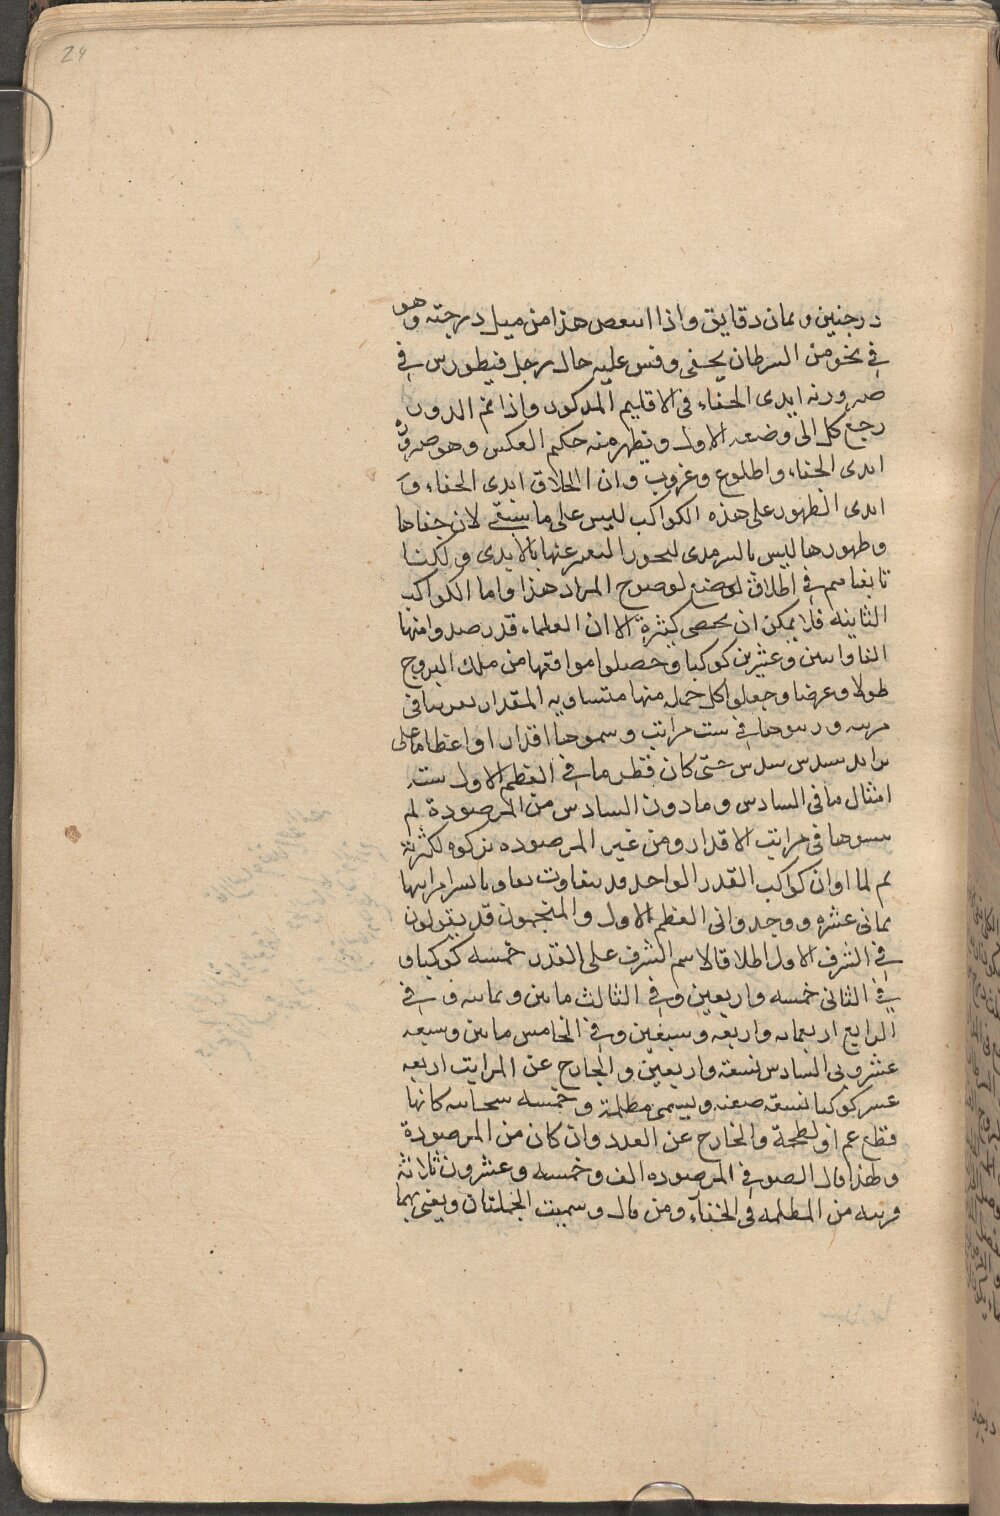 24
درجتين وثمان دقايق واذا انتقص هذا من ميل درجته وهو
في نحو من السرطان يخفى وقس عليه حال رجل قنطورس في
صيرورته ابدى الخفاء في الاقليم المذكور واذا تم الدور
رجع كل الى وضعه الاول ويظهر منه حكم العكس وهو صيرورة
ابدى الخفاء ذا طلوع وغروب وان اطلاق ابدى الخفاء و
ابدى الظهور على هذه الكواكب ليس على ما ينبغي لان خفاها
وظهورها ليس بالسرمدى ليجوز التعبير عنها بالابدى ولكنا
تابعناهم في اطلاق لوضوح المراد هذا واما الكواكب
الثابتة فلا يمكن ان يحصى كثرة الا ان العلماء قد رصدوا منها
الفا واثنين وعشرين كوكبا وحصلوا مواقعها من فلك البروج
طولا وعرضا وجعلوا كل جملة منها متساوية المقدار تقريبا في
مرتبة ورتبوها في ست مراتب وسموها اقدارا واعظاما على
تزايد سدس سدس حتى كان قطر ما في العظم الاول ستة
امثال ما في السادس وما دون السادس من المرصودة لم
يثبتوها في مراتب الاقدار ومن غير المرصودة تركوه لكثرته
ثم لما اوان كواكب القدر الواحد قد يتفاوت
ثماني عشرة ووجدوا في العظم الاول والمنجمون قد يقولون
في الشرف الاول اطلاقا لاسم الشرف على القدر خمسة كوكبا و
في الثاني خمسة واربعين وفي الثالث مايتين وثمانية وفي
الرابع اربعماية واربعة وسبعين وفي الخامس مايتين وسبعة
عشر وفي السادس تسعة واربعين والخارج عن المراتب اربعة
عشر كوكبا تسعة خفية ويسمى مظلمة وخمسة سحابية كانها
قطع غيم او لطخة والخارج عن العدد وان كان من المرصودة
ولهذا قال الصوفي المرصودة الف وخمسة وعشرون ثلاثة
قريبة من المظلمة في الخفاء ومن قال وسميت الجملتان ويعني بهما